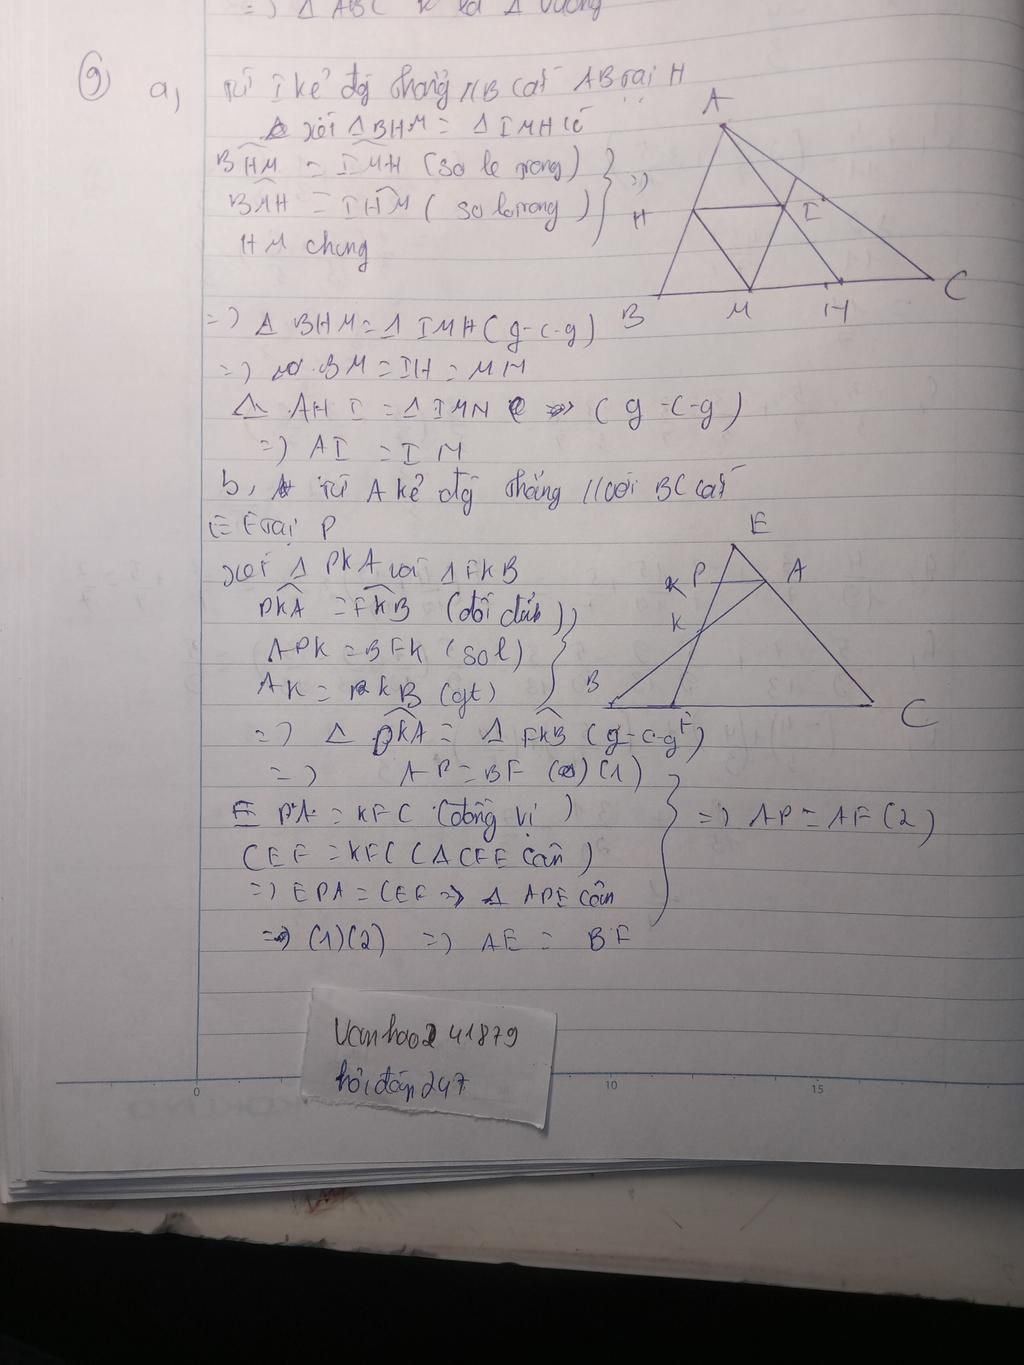 =) Δ ABC là Δ vuông
9)
a, Từ I kẻ đg thẳng // B cắt AB tại H
xét Δ BHM = Δ IMH có
BHM = IMH (so le trong)
BMH = IHM (so le trong) } =)
HM chung
A
H
I
B
M
C
=) Δ BHM = Δ IMH (g-c-g)
=) BM = IH = MN
Δ AHI = Δ IMN (g-c-g)
=) AI = IN
b, Từ A kẻ đg thẳng // với BC cắt
EF tại P
xét Δ PKA với Δ FKB
PKA = FKB (đối đỉnh)
APK = BFK (sol)
AK = KB (gt)
E
P
A
K
B
F
C
=) Δ PKA = Δ FKB (g-c-g)
=) AP = BF (1)
EPA = KFC (đồng vị)
CEF = KFC (Δ CFE cân)
=) AP = AE (2)
=) EPA = CEF => Δ APE cân
=) (1)(2) =) AE = BF
Vanhao241879
hỏi đáp 247
0
10
15